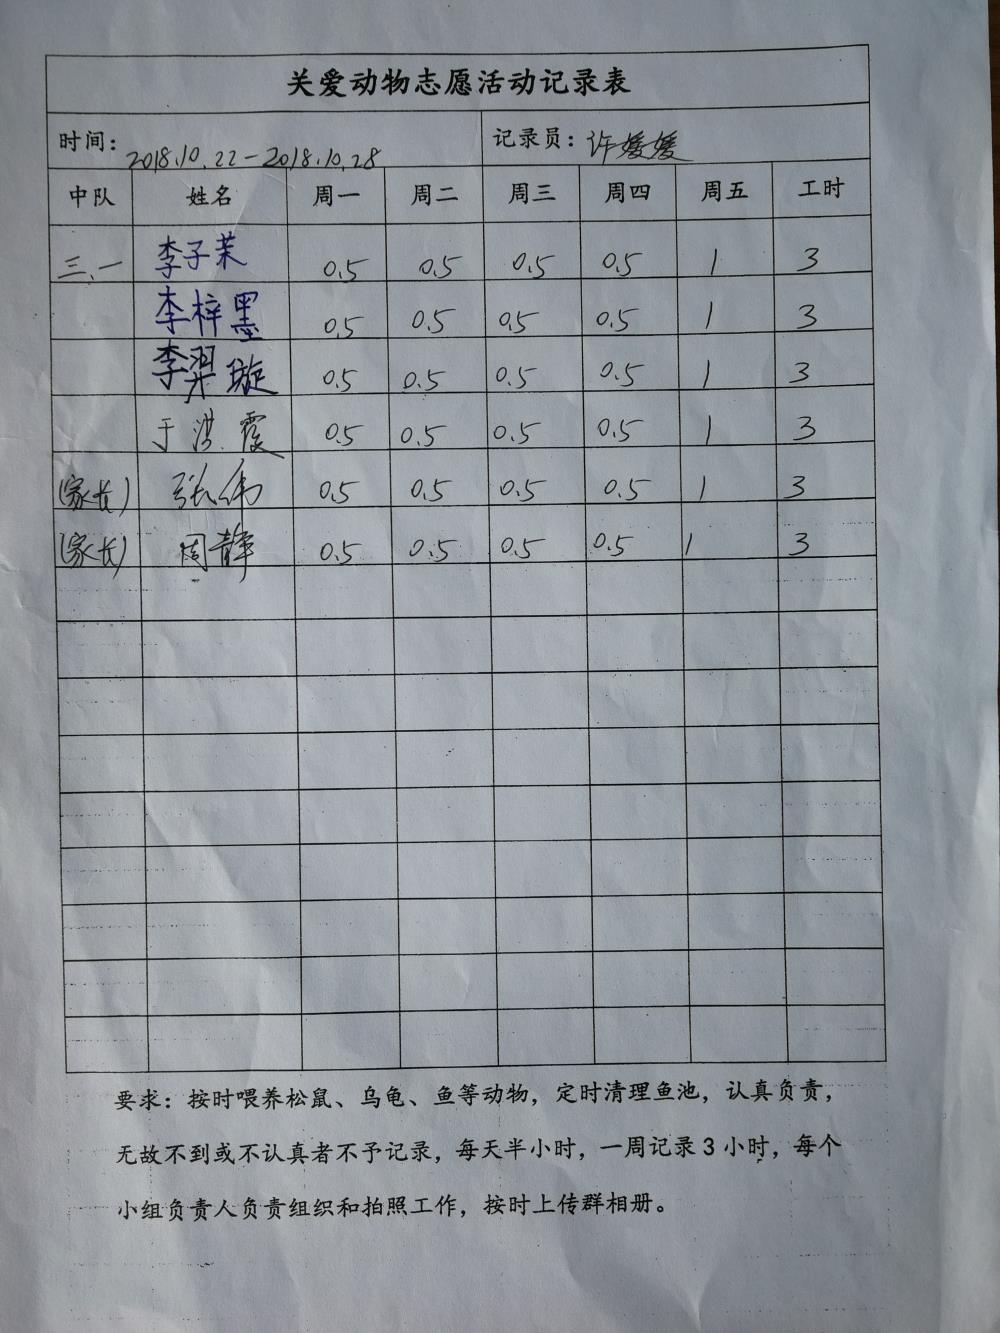 关爱动物志愿活动记录表
时间：2018.10.22-2018.10.28 记录员：许媛媛
中队 姓名 周一 周二 周三 周四 周五 工时
三.一 李子茉 0.5 0.5 0.5 0.5 1 3
李梓墨 0.5 0.5 0.5 0.5 1 3
李羿璇 0.5 0.5 0.5 0.5 1 3
于洪霞 0.5 0.5 0.5 0.5 1 3
(家长) 张伟 0.5 0.5 0.5 0.5 1 3
(家长) 周静 0.5 0.5 0.5 0.5 1 3
要求：按时喂养松鼠、乌龟、鱼等动物，定时清理鱼池，认真负责，
无故不到或不认真者不予记录，每天半小时，一周记录3小时，每个
小组负责人负责组织和拍照工作，按时上传群相册。